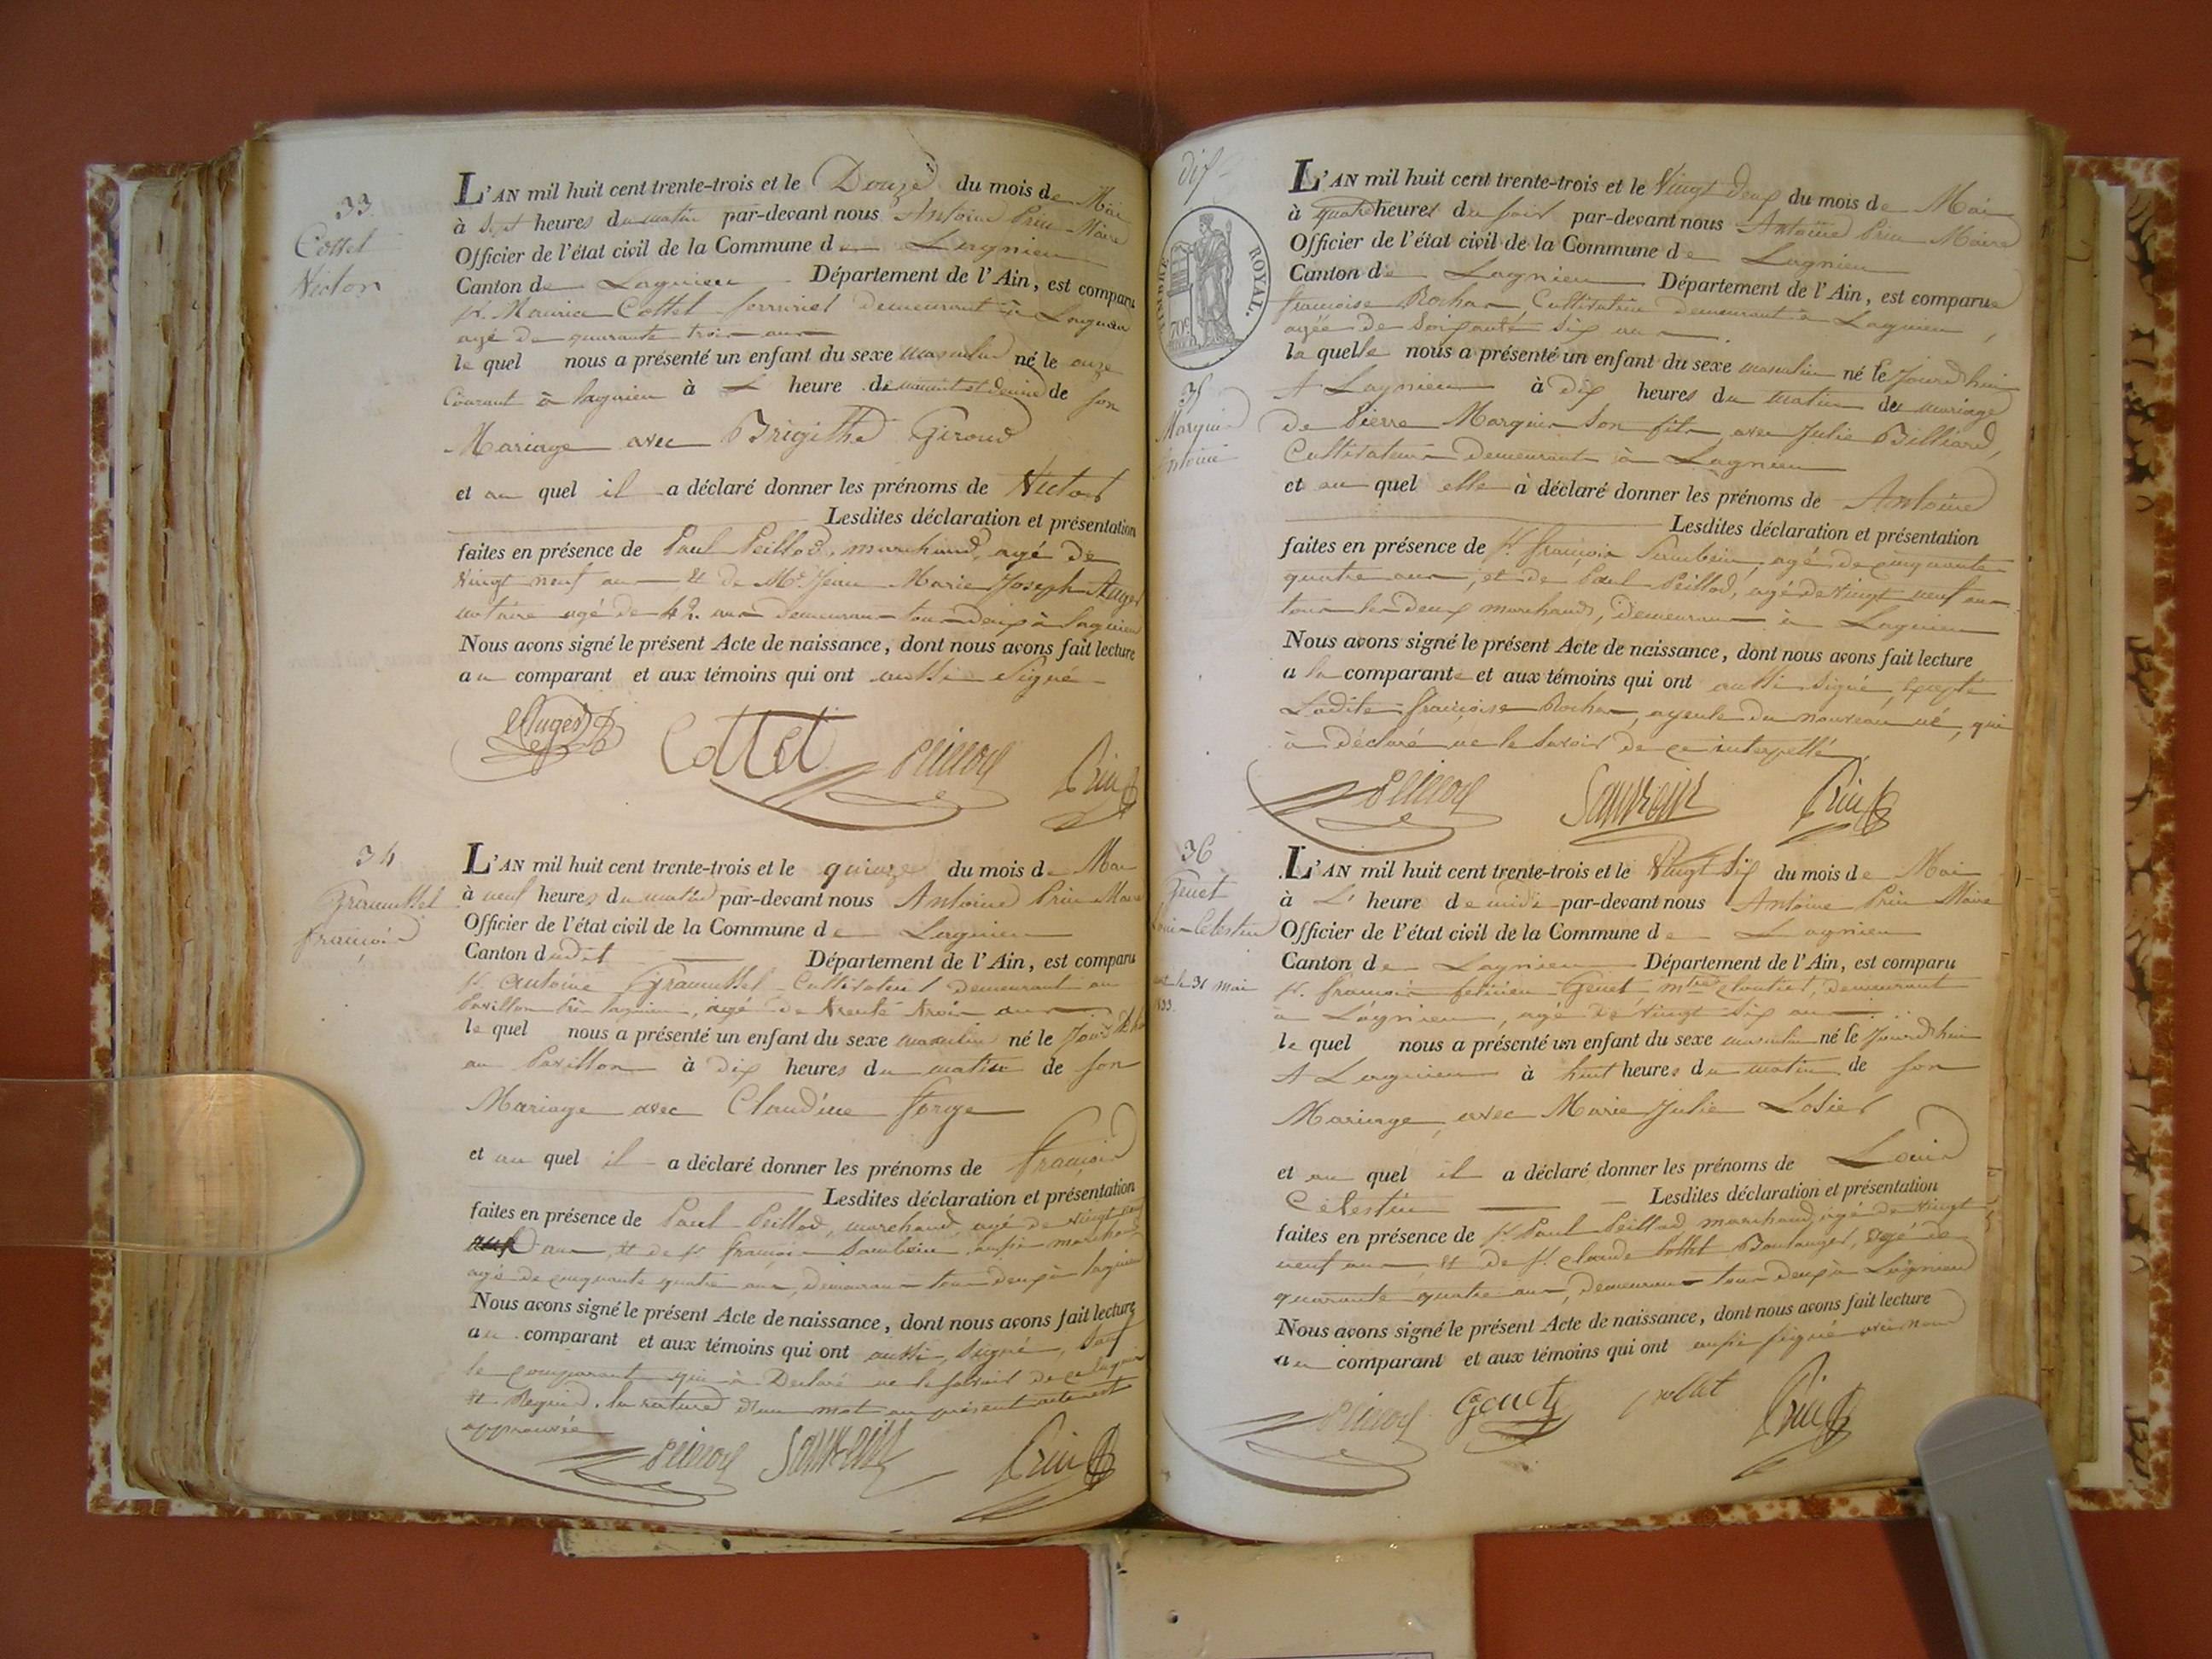 33
Cottet
Victor
L'AN mil huit cent trente-trois et le Douze du mois de Mai
à Sept heures du matin par-devant nous Antoine Prin Maire
Officier de l'état civil de la Commune de Lagnieu
Canton de Lagnieu Département de l'Ain, est comparu
Sr. Maurice Cottet serrurier demeurant à Lagnieu
agé de quarante trois ans
le quel nous a présenté un enfant du sexe masculin né le onze
Courant à lagnieu à L heure de minuit et demie de son
Mariage avec Brigithe Giroud
et au quel il a déclaré donner les prénoms de Victor
Lesdites déclaration et présentation
faites en présence de Paul Peillod, marchand, agé de
vingt neuf ans et de Me. Jean Marie Joseph Auger
notaire agé de 42. ans demeurans tous deux à lagnieu
Nous avons signé le présent Acte de naissance, dont nous avons fait lecture
au comparant et aux témoins qui ont aussi Signé
Auger Cottet Peillod Prin
34
Gramussel
françois
L'AN mil huit cent trente-trois et le quinze du mois de Mai
à neuf heures du matin par-devant nous Antoine Prin Maire
Officier de l'état civil de la Commune de Lagnieu
Canton dudit Département de l'Ain, est comparu
Sr. Antoine Cultivateur demeurant au
Pavillon lagnieu, agé de trente trois ans
le quel nous a présenté un enfant du sexe masculin né le
au Pavillon à Dix heures du matin de son
Mariage avec Claudine forge
et au quel il a déclaré donner les prénoms de françois
Lesdites déclaration et présentation
faites en présence de Paul Peillod, marchand, agé de vingt neuf
ans, et de Sr. françois aussi marchand
agé de cinquante quatre ans, demeurans tous deux à lagnieu
Nous avons signé le présent Acte de naissance, dont nous avons fait lecture
au comparant et aux témoins qui ont aussi, signé, sauf
le comparant qui à Declaré ne le savoir de ce enquis
et Requis. la rature d'un mot au présent acte est
approuvée
Peillod Prin
dix
TIMBRE ROYAL.
70c
35
Marguin
Antoine
L'AN mil huit cent trente-trois et le Vingt Deux du mois de Mai
à quatre heures du soir par-devant nous Antoine Prin Maire
Officier de l'état civil de la Commune de Lagnieu
Canton de Lagnieu Département de l'Ain, est comparue
françoise Rochas Cultivatrice demeurant à Lagnieu,
agée de Soixante Six ans
la quelle nous a présenté un enfant du sexe masculin né le Jourd'hui
A Lagnieu à dix heures du matin du mariage
de Pierre Marguin Son fils avec Julie Billiard,
Cultivateurs Demeurants à Lagnieu
et au quel elle à déclaré donner les prénoms de Antoine
Lesdites déclaration et présentation
faites en présence de Sr. françois agé de cinquante
quatre ans, et de Paul Peillod, agé de vingt neuf ans
tous les deux marchands, Demeurans à Lagnieu
Nous avons signé le présent Acte de naissance, dont nous avons fait lecture
a la comparante et aux témoins qui ont aussi signé, excepté
Ladite françoise Rochas, ayeule du nouveau né, qui
à déclaré ne le savoir de ce interpellé
Peillod Prin
36
Genet
Louis Celestin
le 31 mai
L'AN mil huit cent trente-trois et le Vingt Six du mois de Mai
à L' heure de midi par-devant nous Antoine Prin Maire
Officier de l'état civil de la Commune de Lagnieu
Canton de Lagnieu Département de l'Ain, est comparu
Sr. françois felicien Genet mtre Cloutier, demeurant
à Lagnieu, agé de Vingt Six ans
le quel nous a présenté un enfant du sexe masculin né le Jourd'hui
A Lagnieu à huit heures du matin de son
Mariage, avec Marie Julie Losier
et au quel il a déclaré donner les prénoms de Louis
Célestin Lesdites déclaration et présentation
faites en présence de Sr. Paul Peillod marchand, agé de vingt
neuf ans, et de Sr. Claude Boulanger, agé de
quarante quatre ans, demeurans tous deux à Lagnieu
Nous avons signé le présent Acte de naissance, dont nous avons fait lecture
au comparant et aux témoins qui ont aussi signé avec nous
Peillod Genet Prin